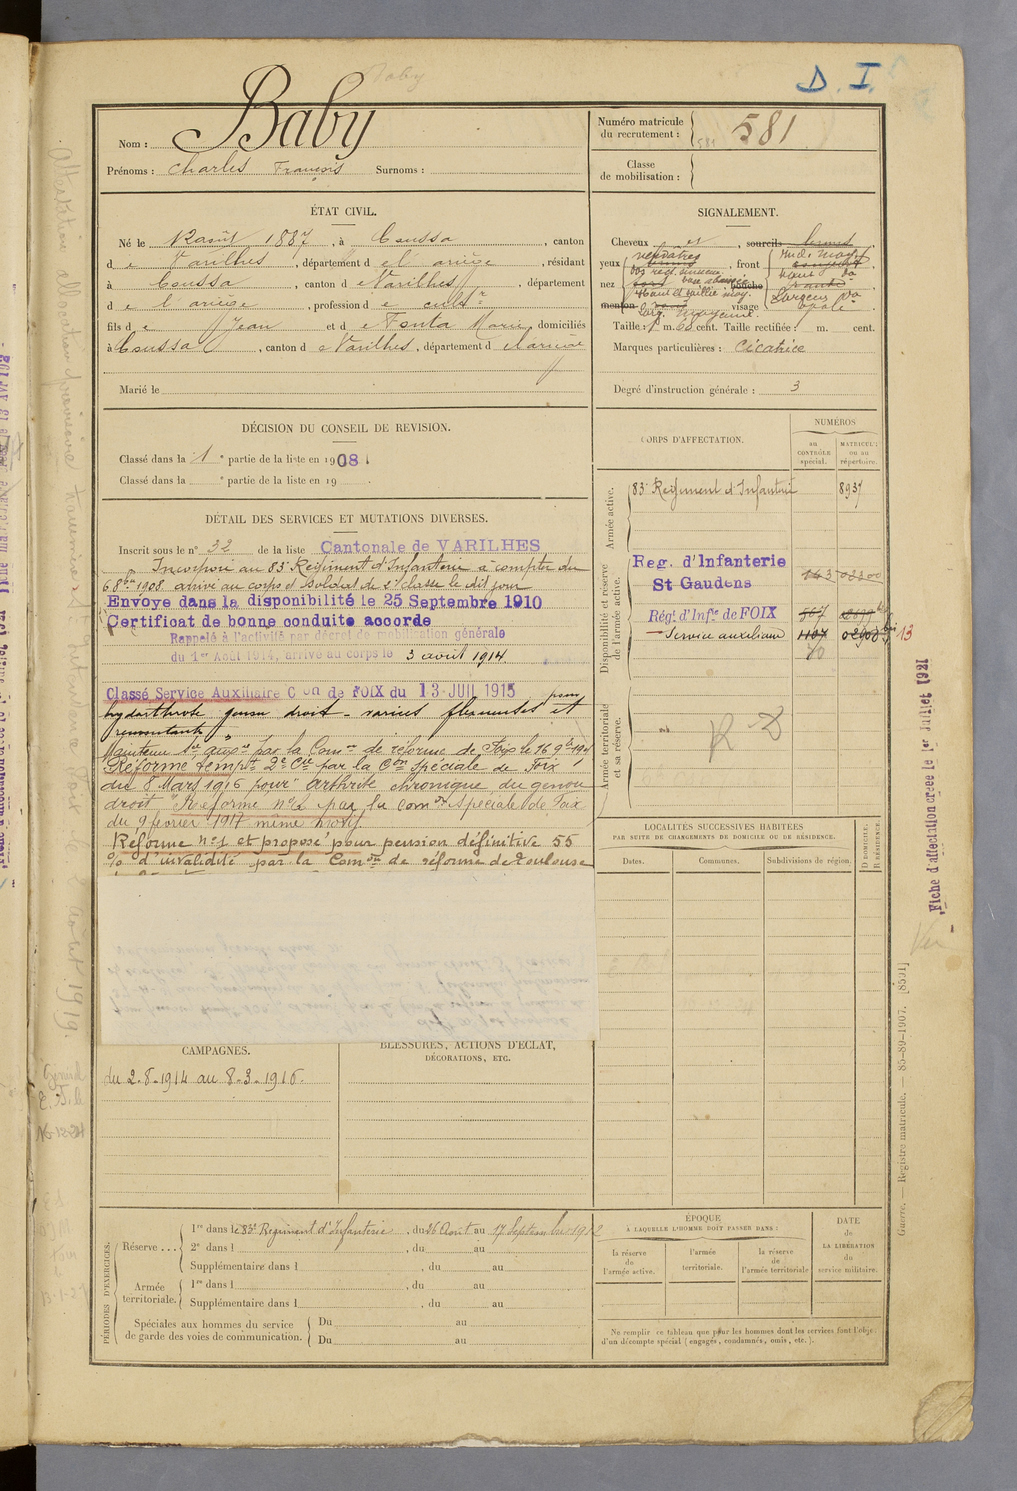 D. I.
Nom : Baby
Prénoms : Charles François Surnoms :
Numéro matricule du recrutement : 581
Classe de mobilisation :
ÉTAT CIVIL.
Né le 12 août 1887, à Coussa, canton
de Varilhes, département de l'ariège, résidant
à Coussa, canton de Varilhes, département
de l'ariège, profession de cultr
fils de Jean et de Fonta Marie domiciliés
à Coussa, canton de Varilhes, département d el'ariège
Marié le
SIGNALEMENT.
Cheveux et, sourcils
yeux verdâtres, front
nez, bouche
menton, visage ovale
Taille : 1 m. 60 cent. Taille rectifiée : m. cent.
Marques particulières : Cicatrice
Degré d'instruction générale : 3
DÉCISION DU CONSEIL DE REVISION.
Classé dans la 1e partie de la liste en 1908.
Classé dans la e partie de la liste en 19
DÉTAIL DES SERVICES ET MUTATIONS DIVERSES.
Inscrit sous le n° 32 de la liste Cantonale de VARILHES
Incorporé au 83e Régiment d'Infanterie à compter du
6 8bre 1908 arrivé au corps et soldat de 2e classe le dit jour
Envoyé dans la disponibilité le 25 Septembre 1910
Certificat de bonne conduite accordé
Rappelé à l'activité par décret de mobilisation générale
du 1er Août 1914, arrivé au corps le 3 août 1914.
Classé Service Auxiliaire Con de FOIX du 13 JUIL 1915 pour
hydarthrose genou droit - varices flexueuses et
remontantes
Maintenu Sce auxre par la Comon de réforme de Foix le 16 9bre 1915
Réforme tempre 2e Cie par la Con spéciale de Foix
du 8 Mars 1916 pour arthrite chronique du genou
droit. Réformé n°2 par la comon spéciale de Foix
du 9 février 1917 même motif.
Réformé n°1 et proposé pour pension définitive 55
% d'invalidité par la Comon de réforme de Toulouse
CORPS D'AFFECTATION.
NUMÉROS
au CONTRÔLE spécial.
MATRICULE ou au répertoire.
Armée active.
83e Régiment d'Infanterie 8937
Disponibilité et réserve de l'armée active.
Rég. d'Infanterie St Gaudens 143 02200
Régt d'Infie de FOIX 567
Service auxiliaire 1107 02908 bis 13
70
Armée territoriale et sa réserve.
LOCALITÉS SUCCESSIVES HABITÉES
PAR SUITE DE CHANGEMENTS DE DOMICILE OU DE RÉSIDENCE.
Dates.
Communes.
Subdivisions de région.
D DOMICILE, R RÉSIDENCE.
CAMPAGNES.
du 2.8.1914 au 8.3.1916.
BLESSURES, ACTIONS D'ÉCLAT, DÉCORATIONS, ETC.
PÉRIODES D'EXERCICES.
Réserve ...
1re dans le 83e Régiment d'Infanterie, du 26 Août au 17 Septembre 1912
2e dans l, du au
Supplémentaire dans l, du au
Armée territoriale.
1re dans l, du au
Supplémentaire dans l, du au
Spéciales aux hommes du service de garde des voies de communication.
Du au
Du au
ÉPOQUE
À LAQUELLE L'HOMME DOIT PASSER DANS :
la réserve de l'armée active.
l'armée territoriale.
la réserve de l'armée territoriale
DATE de LA LIBÉRATION du service militaire.
Ne remplir ce tableau que pour les hommes dont les services font l'objet
d'un décompte spécial (engagés, condamnés, omis, etc.).
Fiche d'affectation créée le 1er Juillet 1921
Guerre. — Registre matricule. — 85-89-1907. [8591]